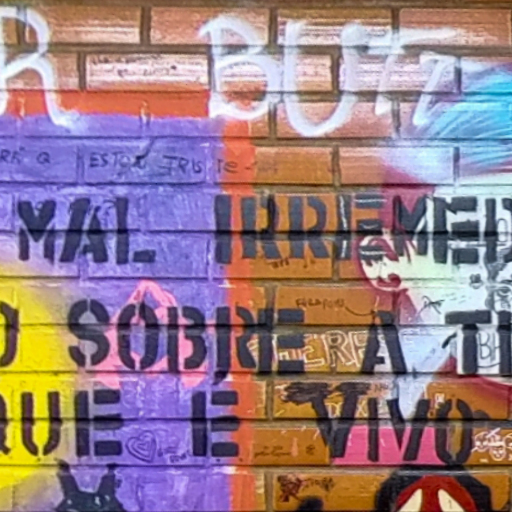 R BUTZ
ESTOU TRISTE
MAL IRREMED
O SOBRE A TI
QUE E VIVO